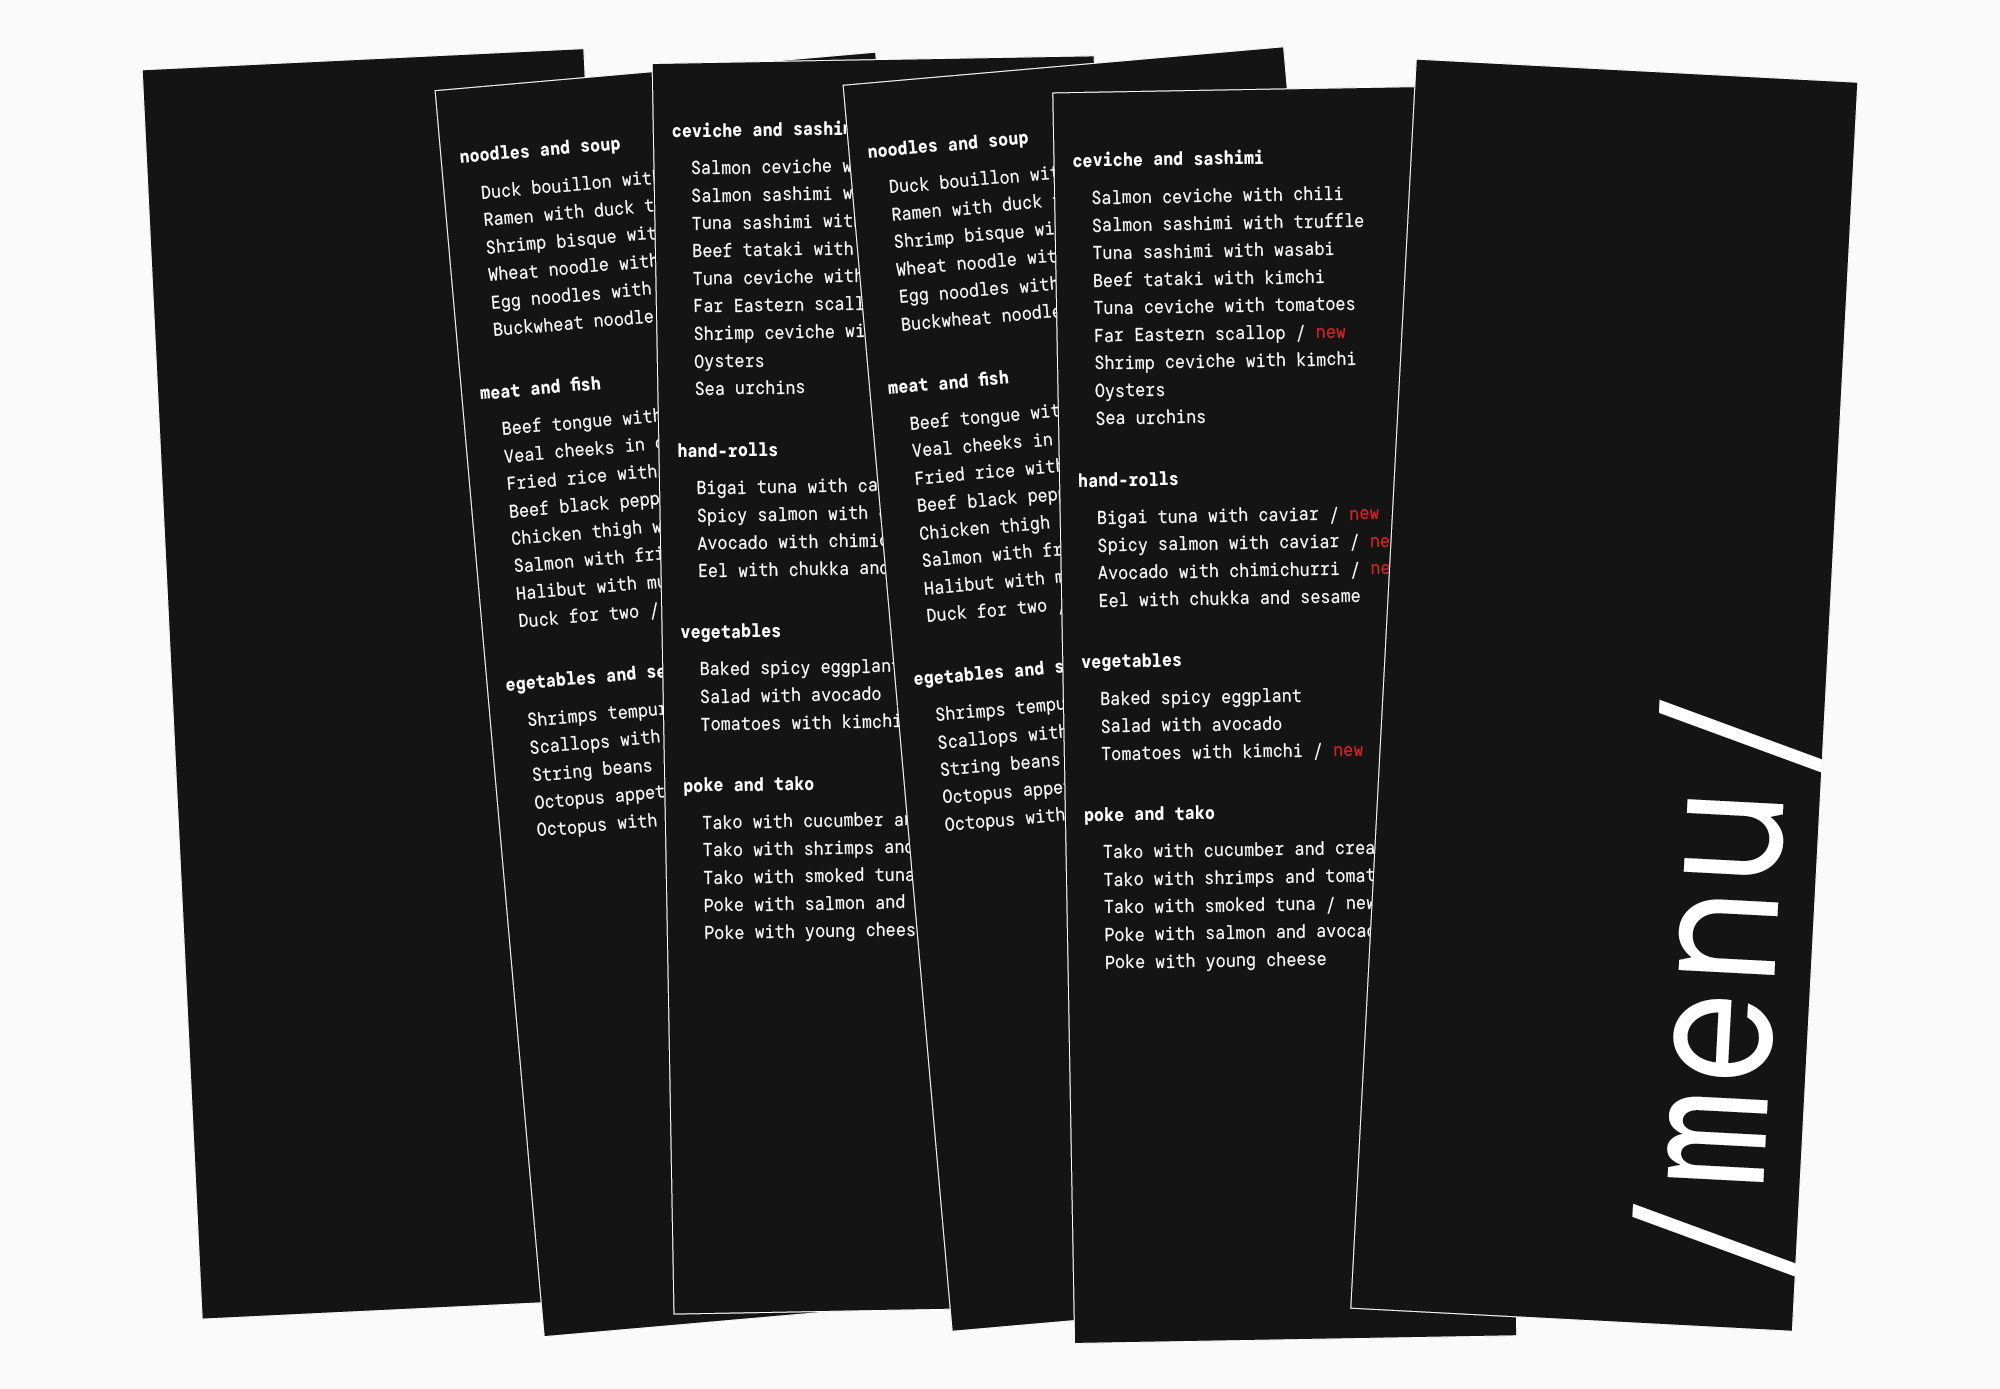 noodles and soup
Duck bouillon wit
Ramen with duck t
Shrimp bisque wit
Wheat noodle with
Egg noodles with
Buckwheat noodle
meat and fish
Beef tongue with
Veal cheeks in
Fried rice with
Beef black pepp
Chicken thigh w
Salmon with fri
Halibut with mu
Duck for two /
egetables and se
Shrimps tempur
Scallops with
String beans
Octopus appet
Octopus with
ceviche and sashim
Salmon ceviche w
Salmon sashimi w
Tuna sashimi wit
Beef tataki with
Tuna ceviche with
Far Eastern scall
Shrimp ceviche wi
Oysters
Sea urchins
hand-rolls
Bigai tuna with ca
Spicy salmon with
Avocado with chimic
Eel with chukka and
vegetables
Baked spicy eggplant
Salad with avocado
Tomatoes with kimchi
poke and tako
Tako with cucumber an
Tako with shrimps and
Tako with smoked tuna
Poke with salmon and
Poke with young chees
noodles and soup
Duck bouillon wit
Ramen with duck
Shrimp bisque wi
Wheat noodle wit
Egg noodles with
Buckwheat noodle
meat and fish
Beef tongue wit
Veal cheeks in
Fried rice with
Beef black pep
Chicken thigh
Salmon with fr
Halibut with m
Duck for two /
egetables and s
Shrimps tempu
Scallops with
String beans
Octopus appe
Octopus with
ceviche and sashimi
Salmon ceviche with chili
Salmon sashimi with truffle
Tuna sashimi with wasabi
Beef tataki with kimchi
Tuna ceviche with tomatoes
Far Eastern scallop / new
Shrimp ceviche with kimchi
Oysters
Sea urchins
hand-rolls
Bigai tuna with caviar / new
Spicy salmon with caviar / ne
Avocado with chimichurri / ne
Eel with chukka and sesame
vegetables
Baked spicy eggplant
Salad with avocado
Tomatoes with kimchi / new
poke and tako
Tako with cucumber and crea
Tako with shrimps and tomat
Tako with smoked tuna / new
Poke with salmon and avocad
Poke with young cheese
/menu/